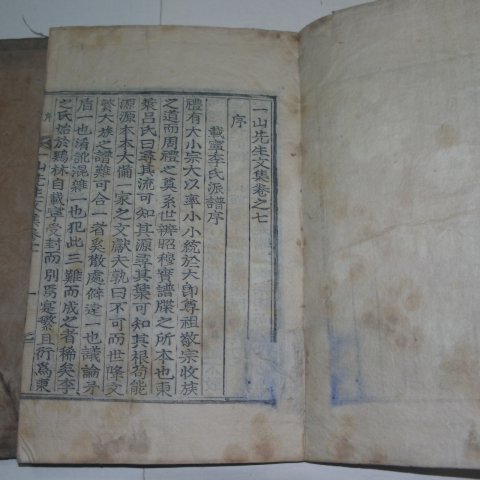 一山先生文集卷之七
序
載寧李氏派譜序
禮有大小宗大以率小小統於大卽尊祖敬宗收族
之道而周禮之奠系世辨昭穆實譜牒之所本也東
萊呂氏曰尋其流可知其源尋其葉可知其根苟能
源源本本大備一家之文獻夫孰曰不可而世降文
繁大族之譜難可合一者矣散處僻遠一也議論矛
盾一也淆訛混雜一也犯此三難而成之者稀矣李
之氏始於鷄林自載寧受封而別爲寔繁且衍爲東
一山先生文集